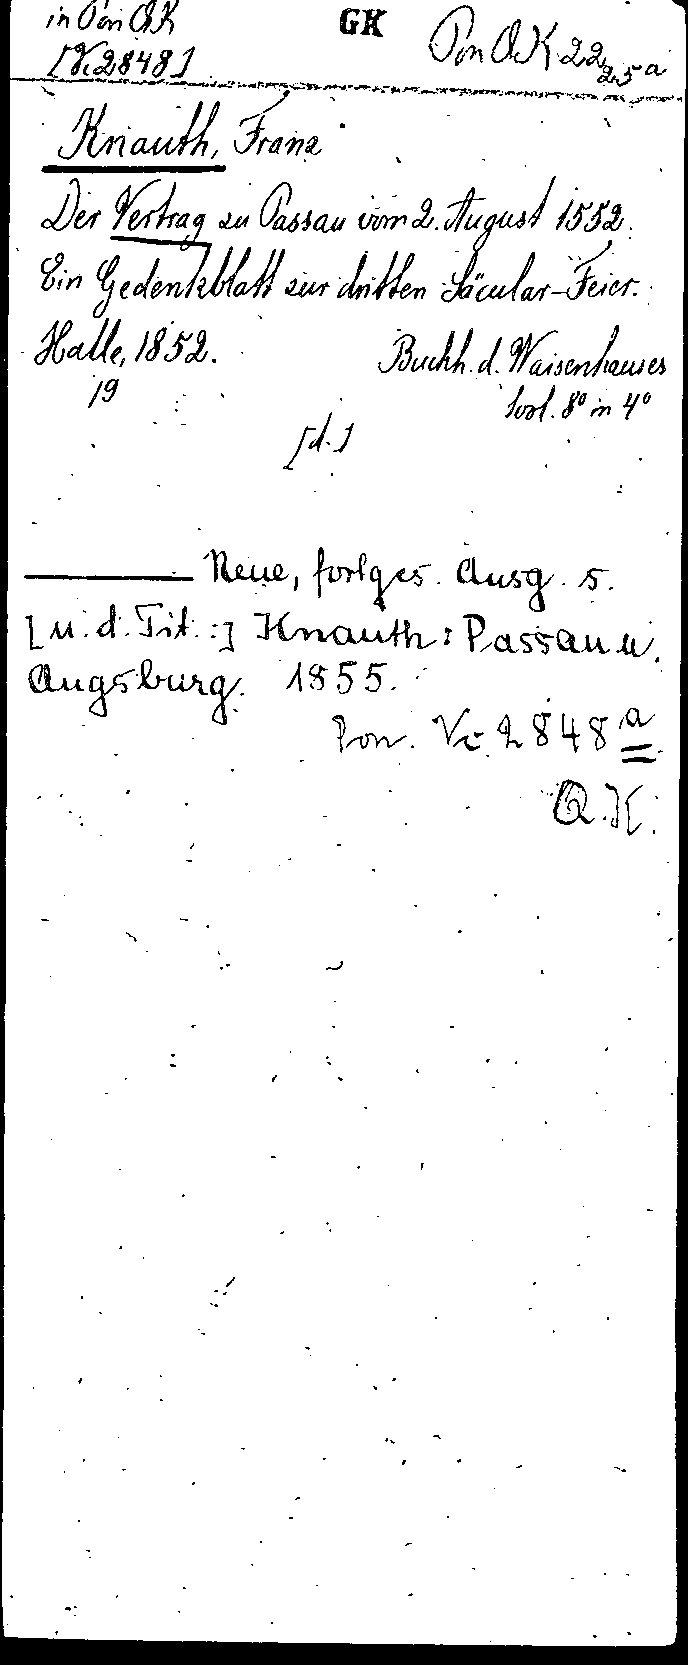 in Pon QK GK Pon QK 22 2,5 a
[Vc 2848]
Knauth, Franz
Der Vertrag zu Passau vom 2. August 1552.
Ein Gedenkblatt zur dritten Säcular-Feier.
Halle, 1852. Buchh. d. Waisenhauses
19 8° in 4°
[d.]
——— Neue, fortges. Ausg. s.
[u. d. Tit.:] Knauth: Passau u.
Augsburg. 1855.
Pon. Vc 2848 a
QK.